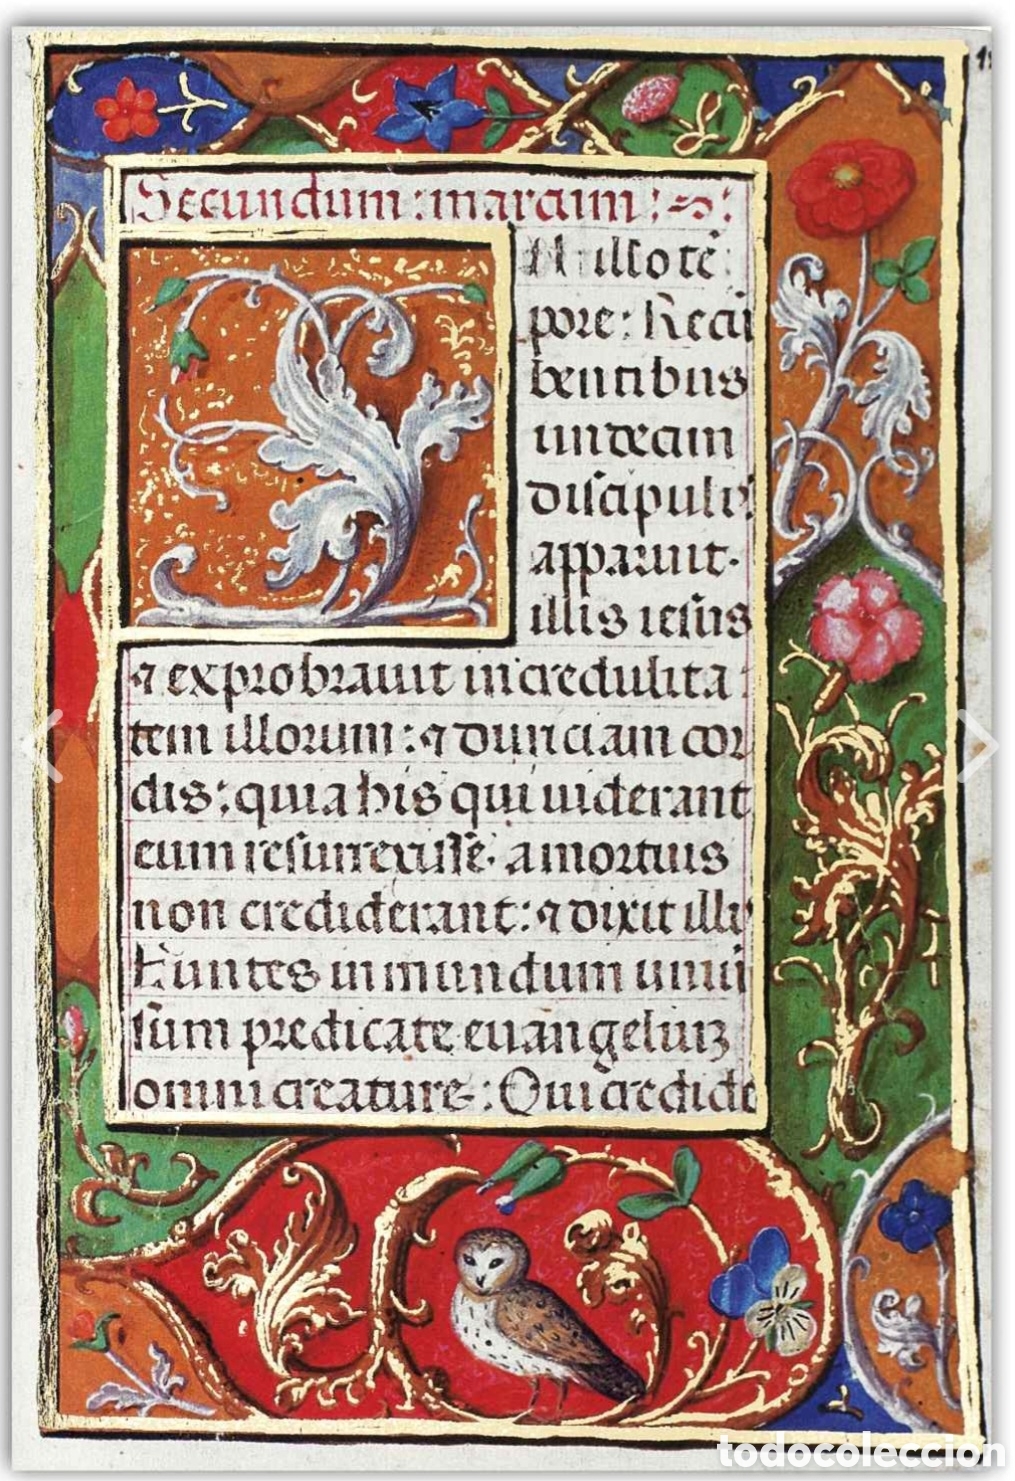 Secundum : marcum : ~ :
N illo tē
pore : Recū
bentibus
undecim
discipulis
apparuit.
illis iesus
⁊ exprobravit incredulita
tem illorum : ⁊ duriciam cor
dis : quia his qui viderant
eum resurrexissē. a mortuis
non crediderant : ⁊ dixit illis
Euntes in mundum univer
sum predicate evangelium
omni creature : Qui credide
todocoleccion